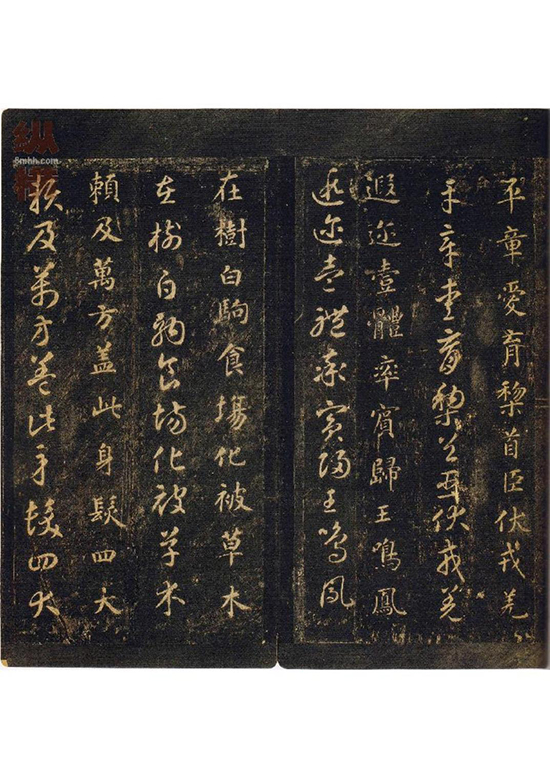 平章愛育黎首臣伏戎羌
平章愛育黎首臣伏戎羌
遐迩壹體率賓歸王鳴鳳
遐迩壹體率賓歸王鳴鳳
在樹白駒食塲化被草木
在樹白駒食場化被草木
賴及萬方盖此身髮四大
賴及萬方盖此身髮四大
纵横
8mhh.com